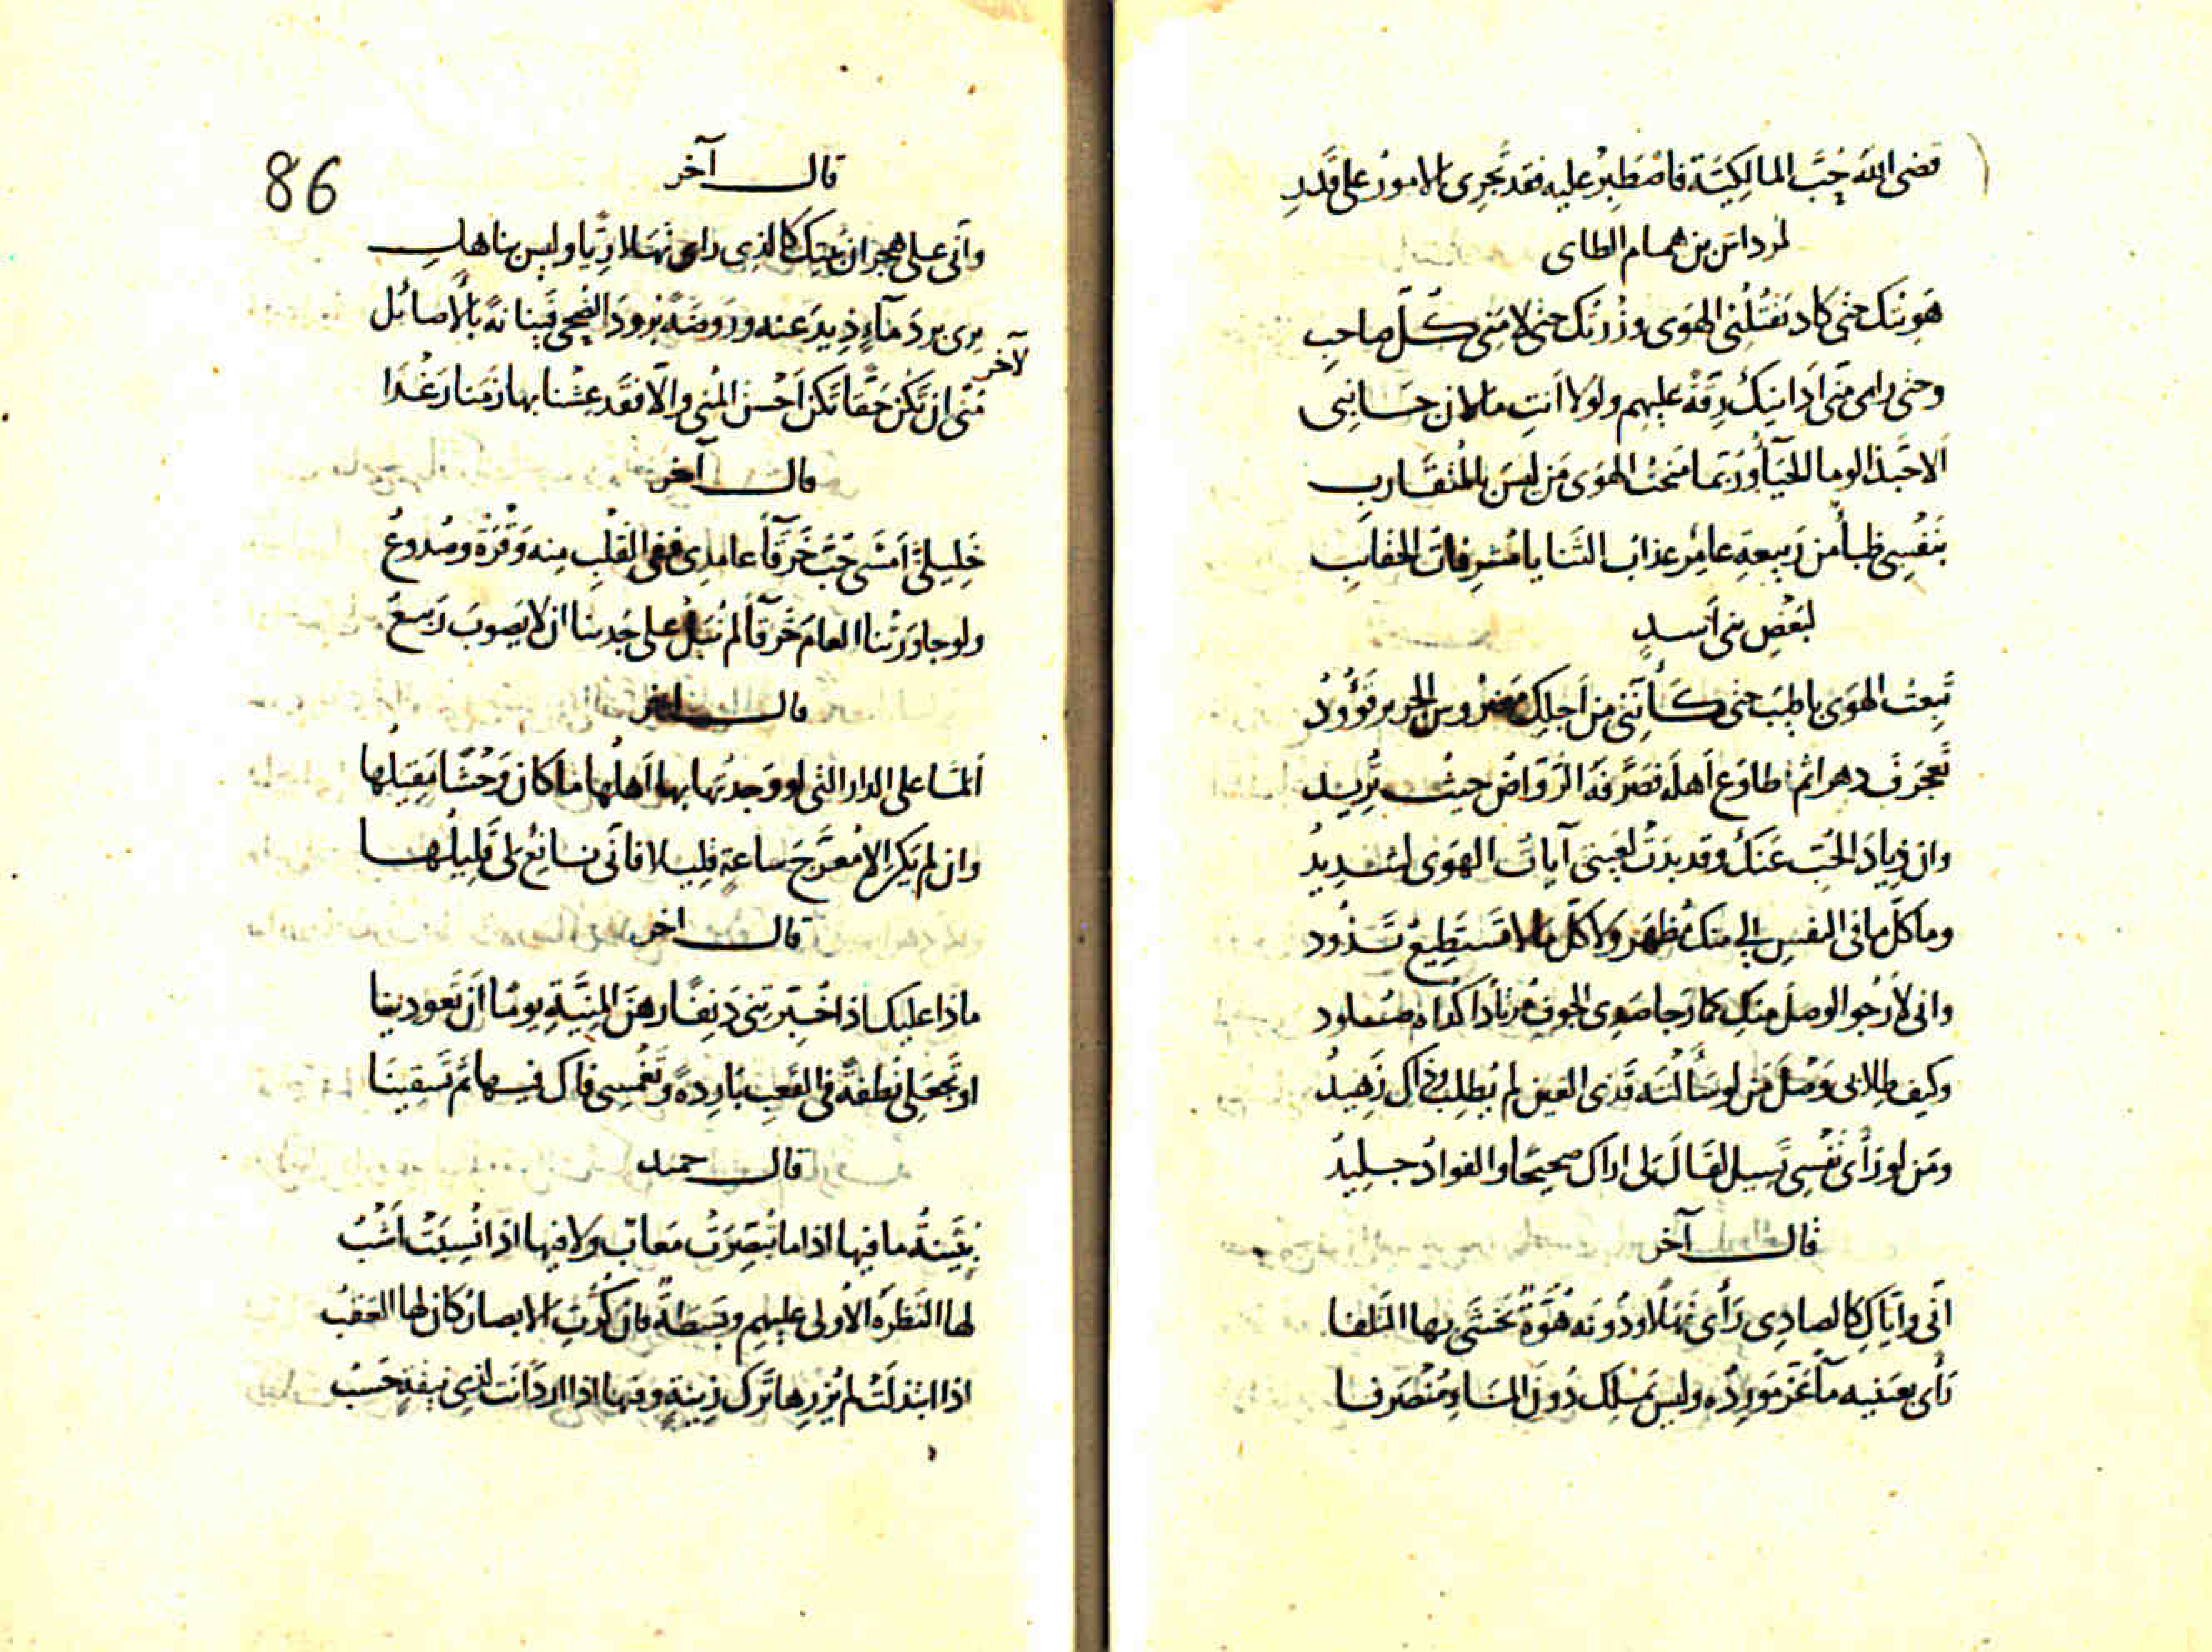 قضى اللهُ حُبَّ المالِكِيَّة فاصْطَبِرْ عليه فقد تَجْرِى الامورُ على قَدْرِ
لمرداس بن همام الطاى
هَوِيتُكِ حتى كاد يَقْتُلُنِى الهَوَى وزُرْتُكِ حتى لامَنِى كلُّ صاحبِ
وحتى راى مِنّى اَدانِيكِ رِقَّةً عليهم ولولا اَنتِ مالان جَانِبِى
اَلا حَبَّذا لوما الحَيَآءُ ورُبَّما مَنَحْتُ الهَوَى مَن لَيسَ بالمُتَقَارِبِ
بِنَفْسِى ظِبآءٌ من رَبِيعَةِ عامِرٍ عِذابُ الثَنايا مُشرِفاتُ الحَقَايِبِ
لبَعْضِ بنى اَسدٍ
تَبِعتُ الهَوَى ياطِيبَ حتى كَأَنَّنِى مِنَ اَجلِكِ مضروس الجرير قَؤُودُ
تَعَجْرَفَ دهرا ثم طاوَعَ اَهلَه فصَرَّفَهُ الرُوّاضُ حيثُ تُرِيدُ
وان ذِيادَ الحُبّ عَنكِ وقد بَدَتْ لعَينى آيات الهَوَى لشَدِيدُ
وما كلُّ ما فى النفسِ لى منكِ مُظهَرٌ ولا كلُّ مالا تَستَطِيعُ تَذُود
وانى لاَرجُو الوصلَ منكِ كما رَجا صَدِى الجوفِ مُرتاداً كُداه صَلود
وكيف طِلابى وَصْلَ مَن لو سَأَلْتُه قَذى العَين لم يُطلِب وذاك زَهِيدُ
ومَن لو رَأَى نَفْسِى تَسِيل لقَالَ لى اراك صحِيحًا والفوادُ جلِيدُ
قال آخر
اَنّى وايّاكِ كالصادِى رَأَى نَهَلًا ودُونَه هُوَّةٌ يَخشَى بها التَلَفا
رَأَى بعَينيه مآءً عَزَّ مَورِدُه وليس يَملِك دُونَ المَاءِ مُنْصَرفا
86
قال آخر
وانى على هِجران بَيتِك كالذى راى نَهَلا رِيّا وليس بناهلِ
يرى بردَ مآءٍ ذِيدَ عنه ورَوضَةً بَرودَ الضُحى فَينانةً بالاَصائل
لآخر
مُنًى ان تَكُن حَقّا تَكُن اَحْسنَ المُنى والّا فقَد عِشْنا بها زَمَنا رَغْدَا
قال آخر
خَلِيلىَّ اَمسَى حُبُّ خَرقآءَ عامدِى ففى القَلبِ منه وَقْرَةٌ وصُدوعُ
ولو جاوَرَتْنا العامَ خَرقآءُ لم نُبَلْ على جَدبِنا ان لا يَصوبَ رَبيعُ
قال اخر
اَلِمّا على الدار التى لو وَجدتُها بها اَهلُها ما كان وَحْشًا مَقِيلُها
وان لم يَكن الا مُعَرَّجَ ساعةٍ قليلا فانى نافعٌ لى قَلِيلُها
قال اخر
ماذا عليك اذ اخْبِرتِنى دَنِفًا رهنَ المَنِيَّةِ يومًا اَن تَعودينا
او تَجْعَلِى نُطفةً فى القَعبِ بَارِدةً وتَغْمِسِى فاك فيها ثم تَسقِينَا
قال حميد
بُثَينةُ ما فيها اذا ما تُبُصِّرَتْ مَعابٌ ولا فيها اذا نُسِبَتْ اَشْبُ
لها النَظرَةُ الاُولى عليهم وبَسطَةٌ وان كُرَّتِ الابصارُ كان لها العَقبُ
اذا ابتذلَتْ لم يُزرِها تَركُ زِينةٍ وفيها اذا ازدانَت لذِى نِيقَةٍ حَسْبُ